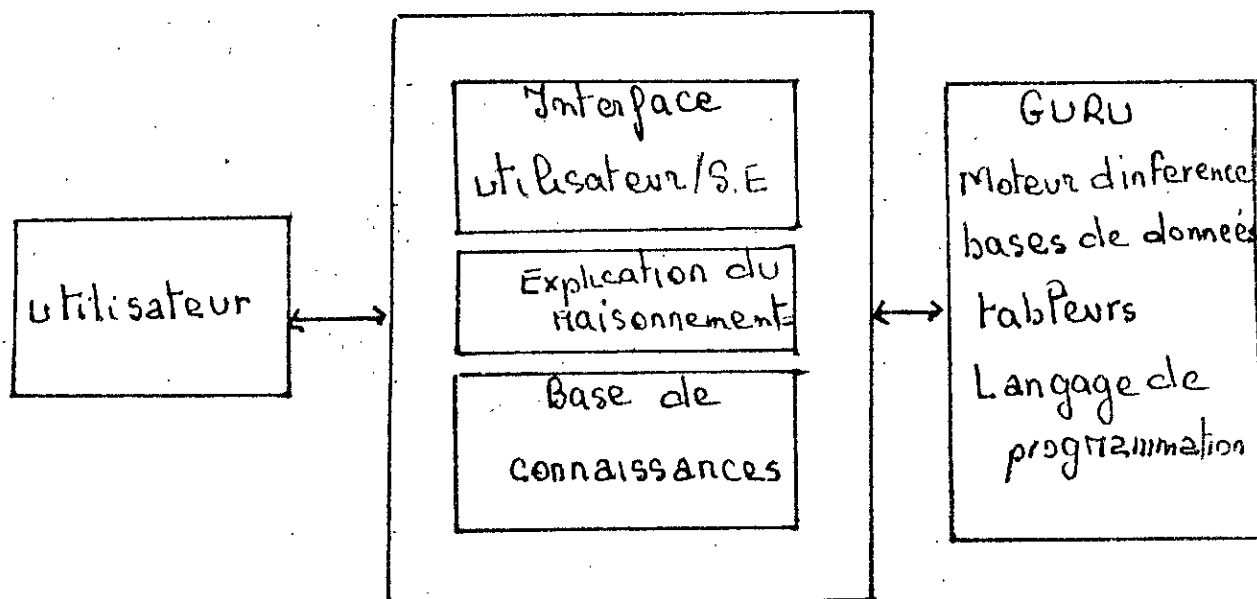 utilisateur
Interface
utilisateur/S.E
Explication du
raisonnement
Base de
connaissances
GURU
Moteur d'inference
bases de données
tableurs
Langage de
programmation